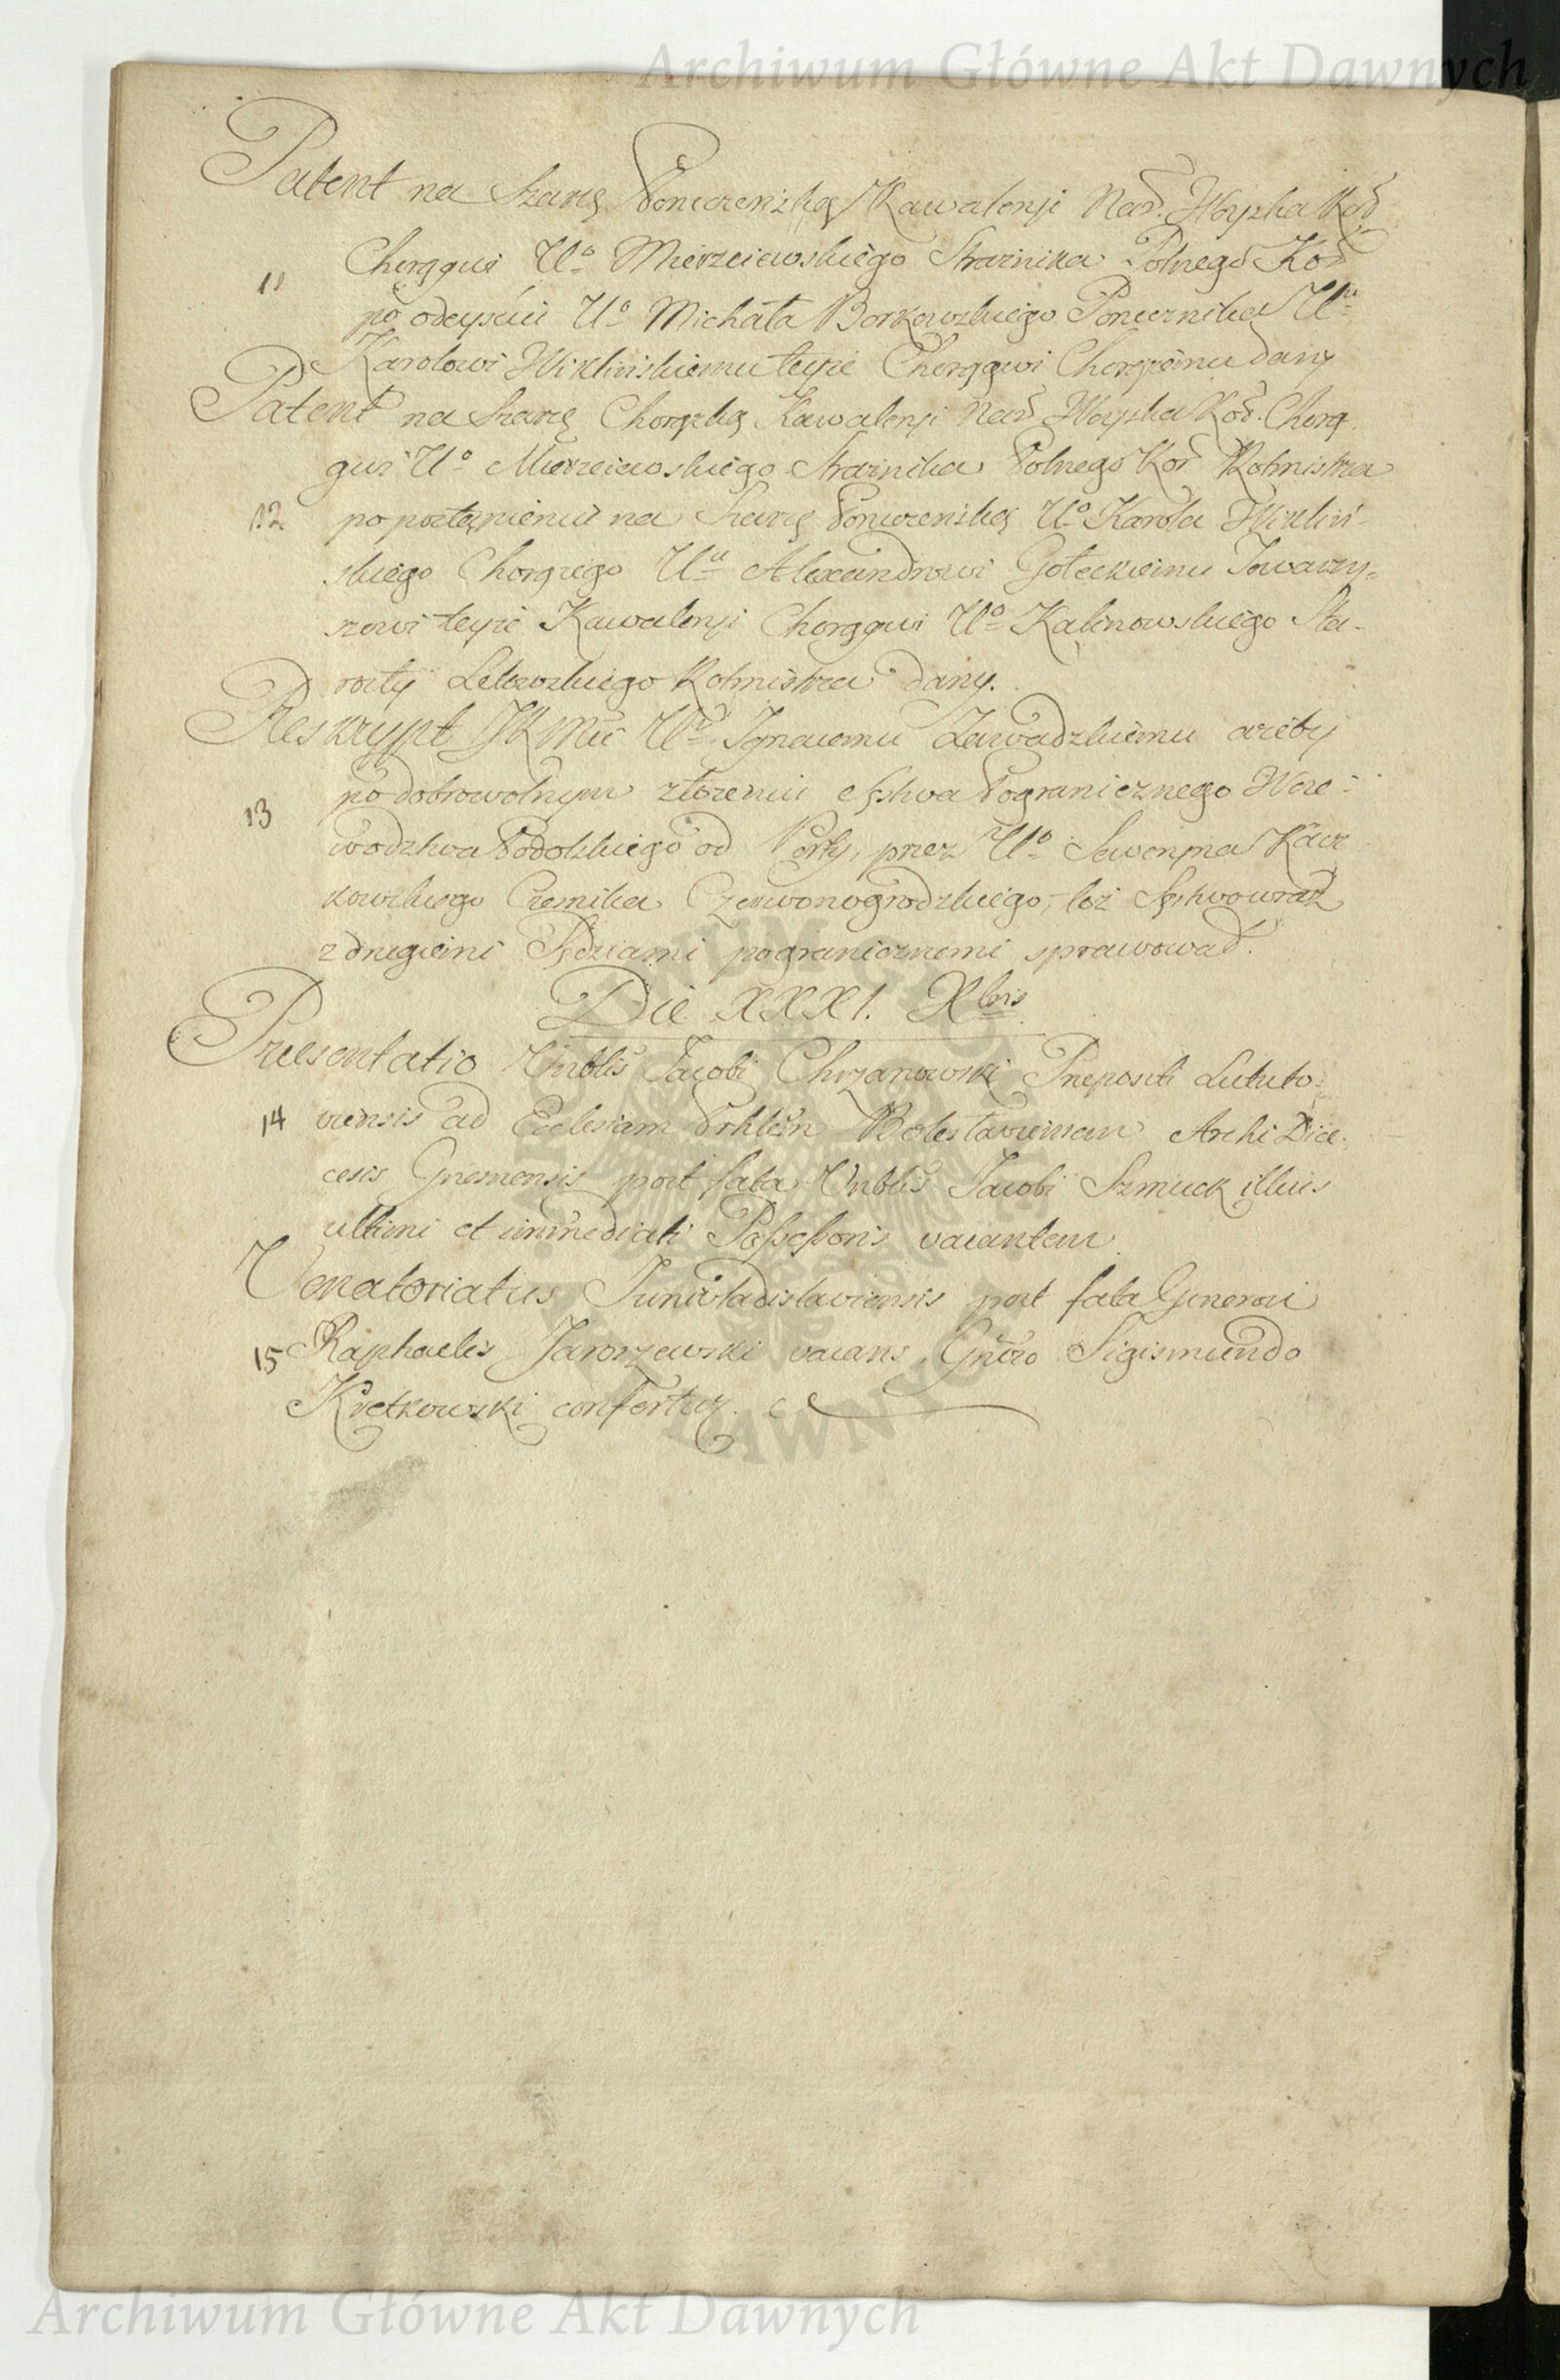 Archiwum Główne Akt Dawnych
Patent na Szarżę Poruczeńską Kawaleryi Nar. Woyska Kor.
11 Chorągwi Uo Mierzeiewskiego Straznika Polnego Kor.
po odeyściu Uo Michała Borkowskiego Porucznika Uu
Karolowi Wiklińskiemu teyże Chorągwi Chorążemu dany
Patent na Szarżę Chorążką Kawaleryi Nar. Woyska Kor. Chorą-
gwi Uo Mierzeiewskiego Straznika Polnego Kor. Rotmistrza
12 po postąpieniu na Szarżę Poruczeńską Uo Karola Wikliń-
skiego Chorążego Uu Alexandrowi Gołeckiemu Towarzy=
szowi teyże Kawaleryi Chorągwi Uo Kalinowskiego Sta-
rosty Rotmistrza dany.
Reskrypt JKMci Uu Ignacemu Zawadzkiemu ażeby
13 po dobrowolnym złożeniu Sęstwa Pogranicznego Woie-
wodztwa Podolskiego od Porty, przez Uo Seweryna
Czesnika Czerwonogrodzkiego, toż Sęstwo wraz
z drugiemi Sędziami pogranicznemi sprawował.
Die XXXI. Xbris
Præsentatio Vnrblis Jacobi Chrzanowski Præpositi Lututo-
14 viensis ad Ecclesiam Prhlem Bolesłaviensem Archi Diœ-
cesis Gnesnensis post fata Vnrblis Jacobi Szmuck illius
ultimi et immediati Possessoris vacantem
Venatoriatus Juniwladislaviensis post fata Generosi
15 Raphaelis Jaroszewski vacans, Gnroso Sigismundo
Kretkowski confertur.
ARCHIWUM GŁÓWNE AKT DAWNYCH
Archiwum Główne Akt Dawnych